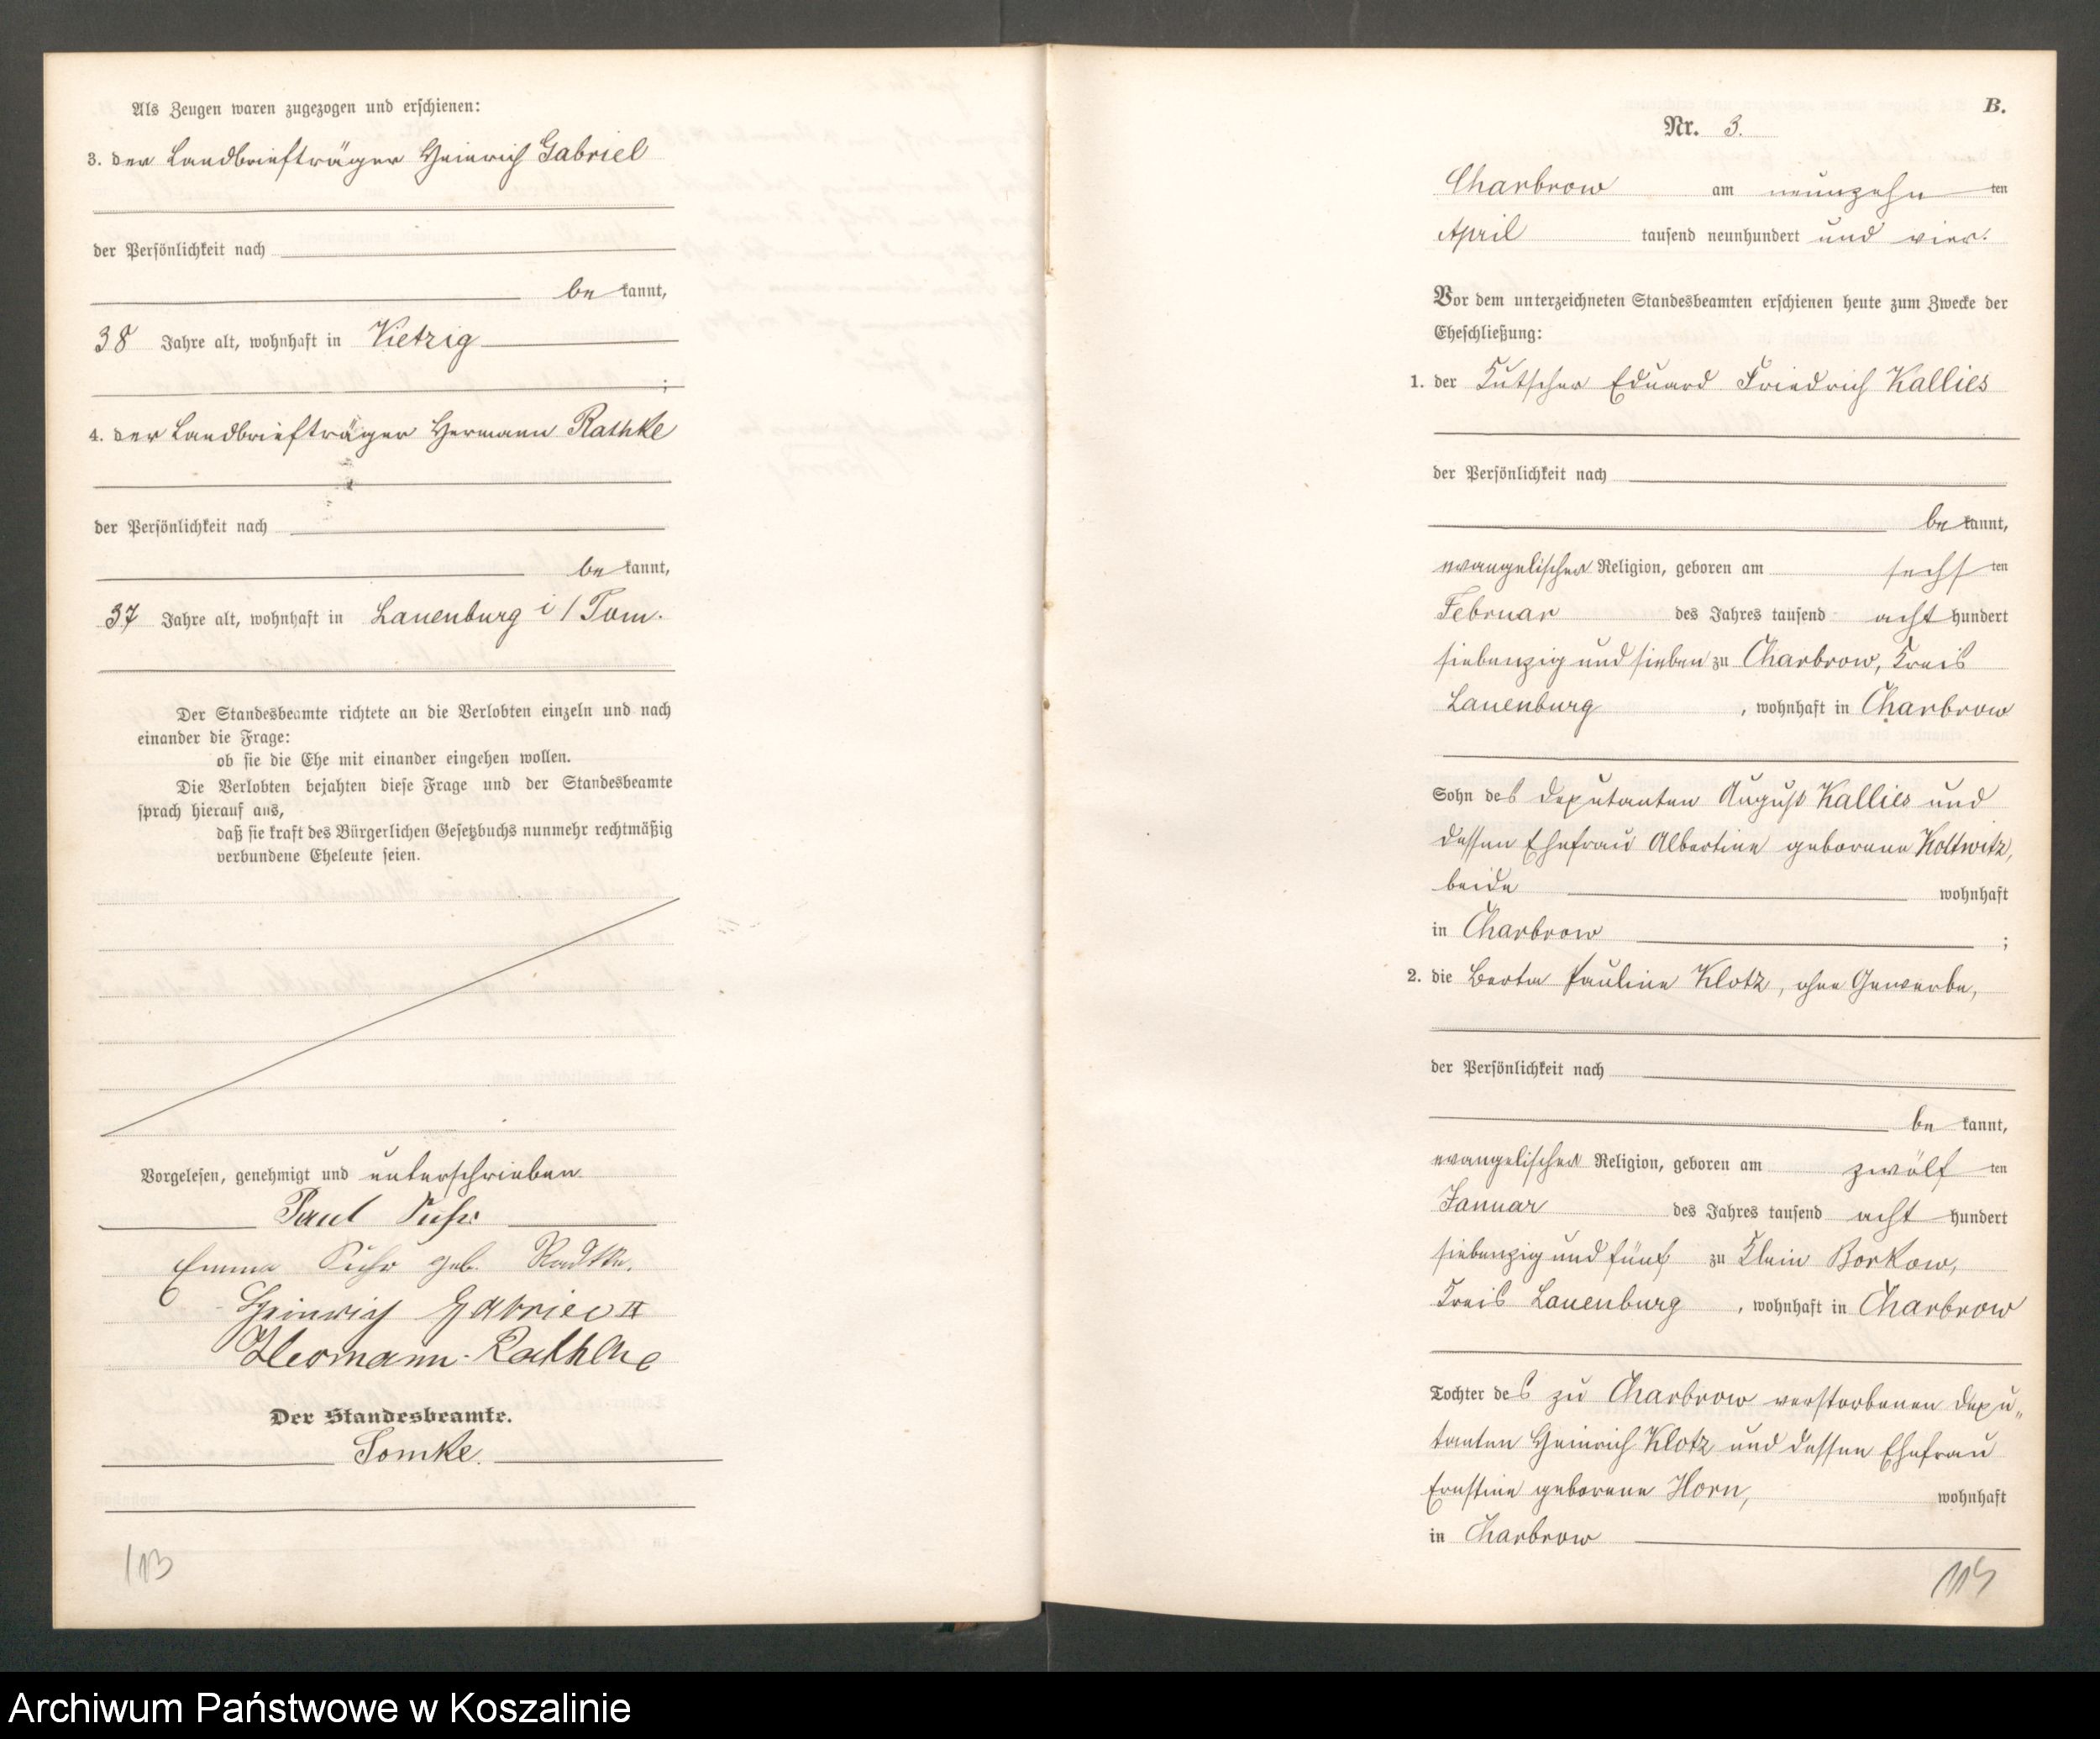 Als Zeugen waren zugezogen und erschienen:
3. der Landbriefträger Heinrich Gabriel
der Persönlichkeit nach
be kannt,
38 Jahre alt, wohnhaft in Vietzig
;
4. der Landbriefträger Hermann Rathke
der Persönlichkeit nach
be kannt,
37 Jahre alt, wohnhaft in Lauenburg i/Pom.
Der Standesbeamte richtete an die Verlobten einzeln und nach
einander die Frage:
ob sie die Ehe mit einander eingehen wollen.
Die Verlobten bejahten diese Frage und der Standesbeamte
sprach hierauf aus,
daß sie kraft des Bürgerlichen Gesetzbuchs nunmehr rechtmäßig
verbundene Eheleute seien.
Vorgelesen, genehmigt und unterschrieben
Paul
Emma geb. Radtke.
Heinrich Gabriel II
Hermann Rathke
Der Standesbeamte.
113
B.
Nr. 3.
Charbrow am neunzehn ten
April tausend neunhundert und vier.
Vor dem unterzeichneten Standesbeamten erschienen heute zum Zwecke der
Eheschließung:
1. der Kutscher Eduard Friedrich Kallies
der Persönlichkeit nach
be kannt,
evangelischer Religion, geboren am sechs ten
Februar des Jahres tausend acht hundert
siebenzig und sieben zu Charbrow, Kreis
Lauenburg, wohnhaft in Charbrow
Sohn des Deputanten August Kallies und
dessen Ehefrau Albertine geborene Kottwitz,
beide wohnhaft
in Charbrow ;
2. die Berta Pauline Klotz, ohne Gewerbe,
der Persönlichkeit nach
be kannt,
evangelischer Religion, geboren am zwölf ten
Januar des Jahres tausend acht hundert
siebenzig und fünf zu Klein Borkow,
Kreis Lauenburg, wohnhaft in Charbrow
Tochter des zu Charbrow verstorbenen Depu„
tanten Heinrich Klotz und dessen Ehefrau
Ernstine geborene Horn, wohnhaft
in Charbrow
Archiwum Państwowe w Koszalinie